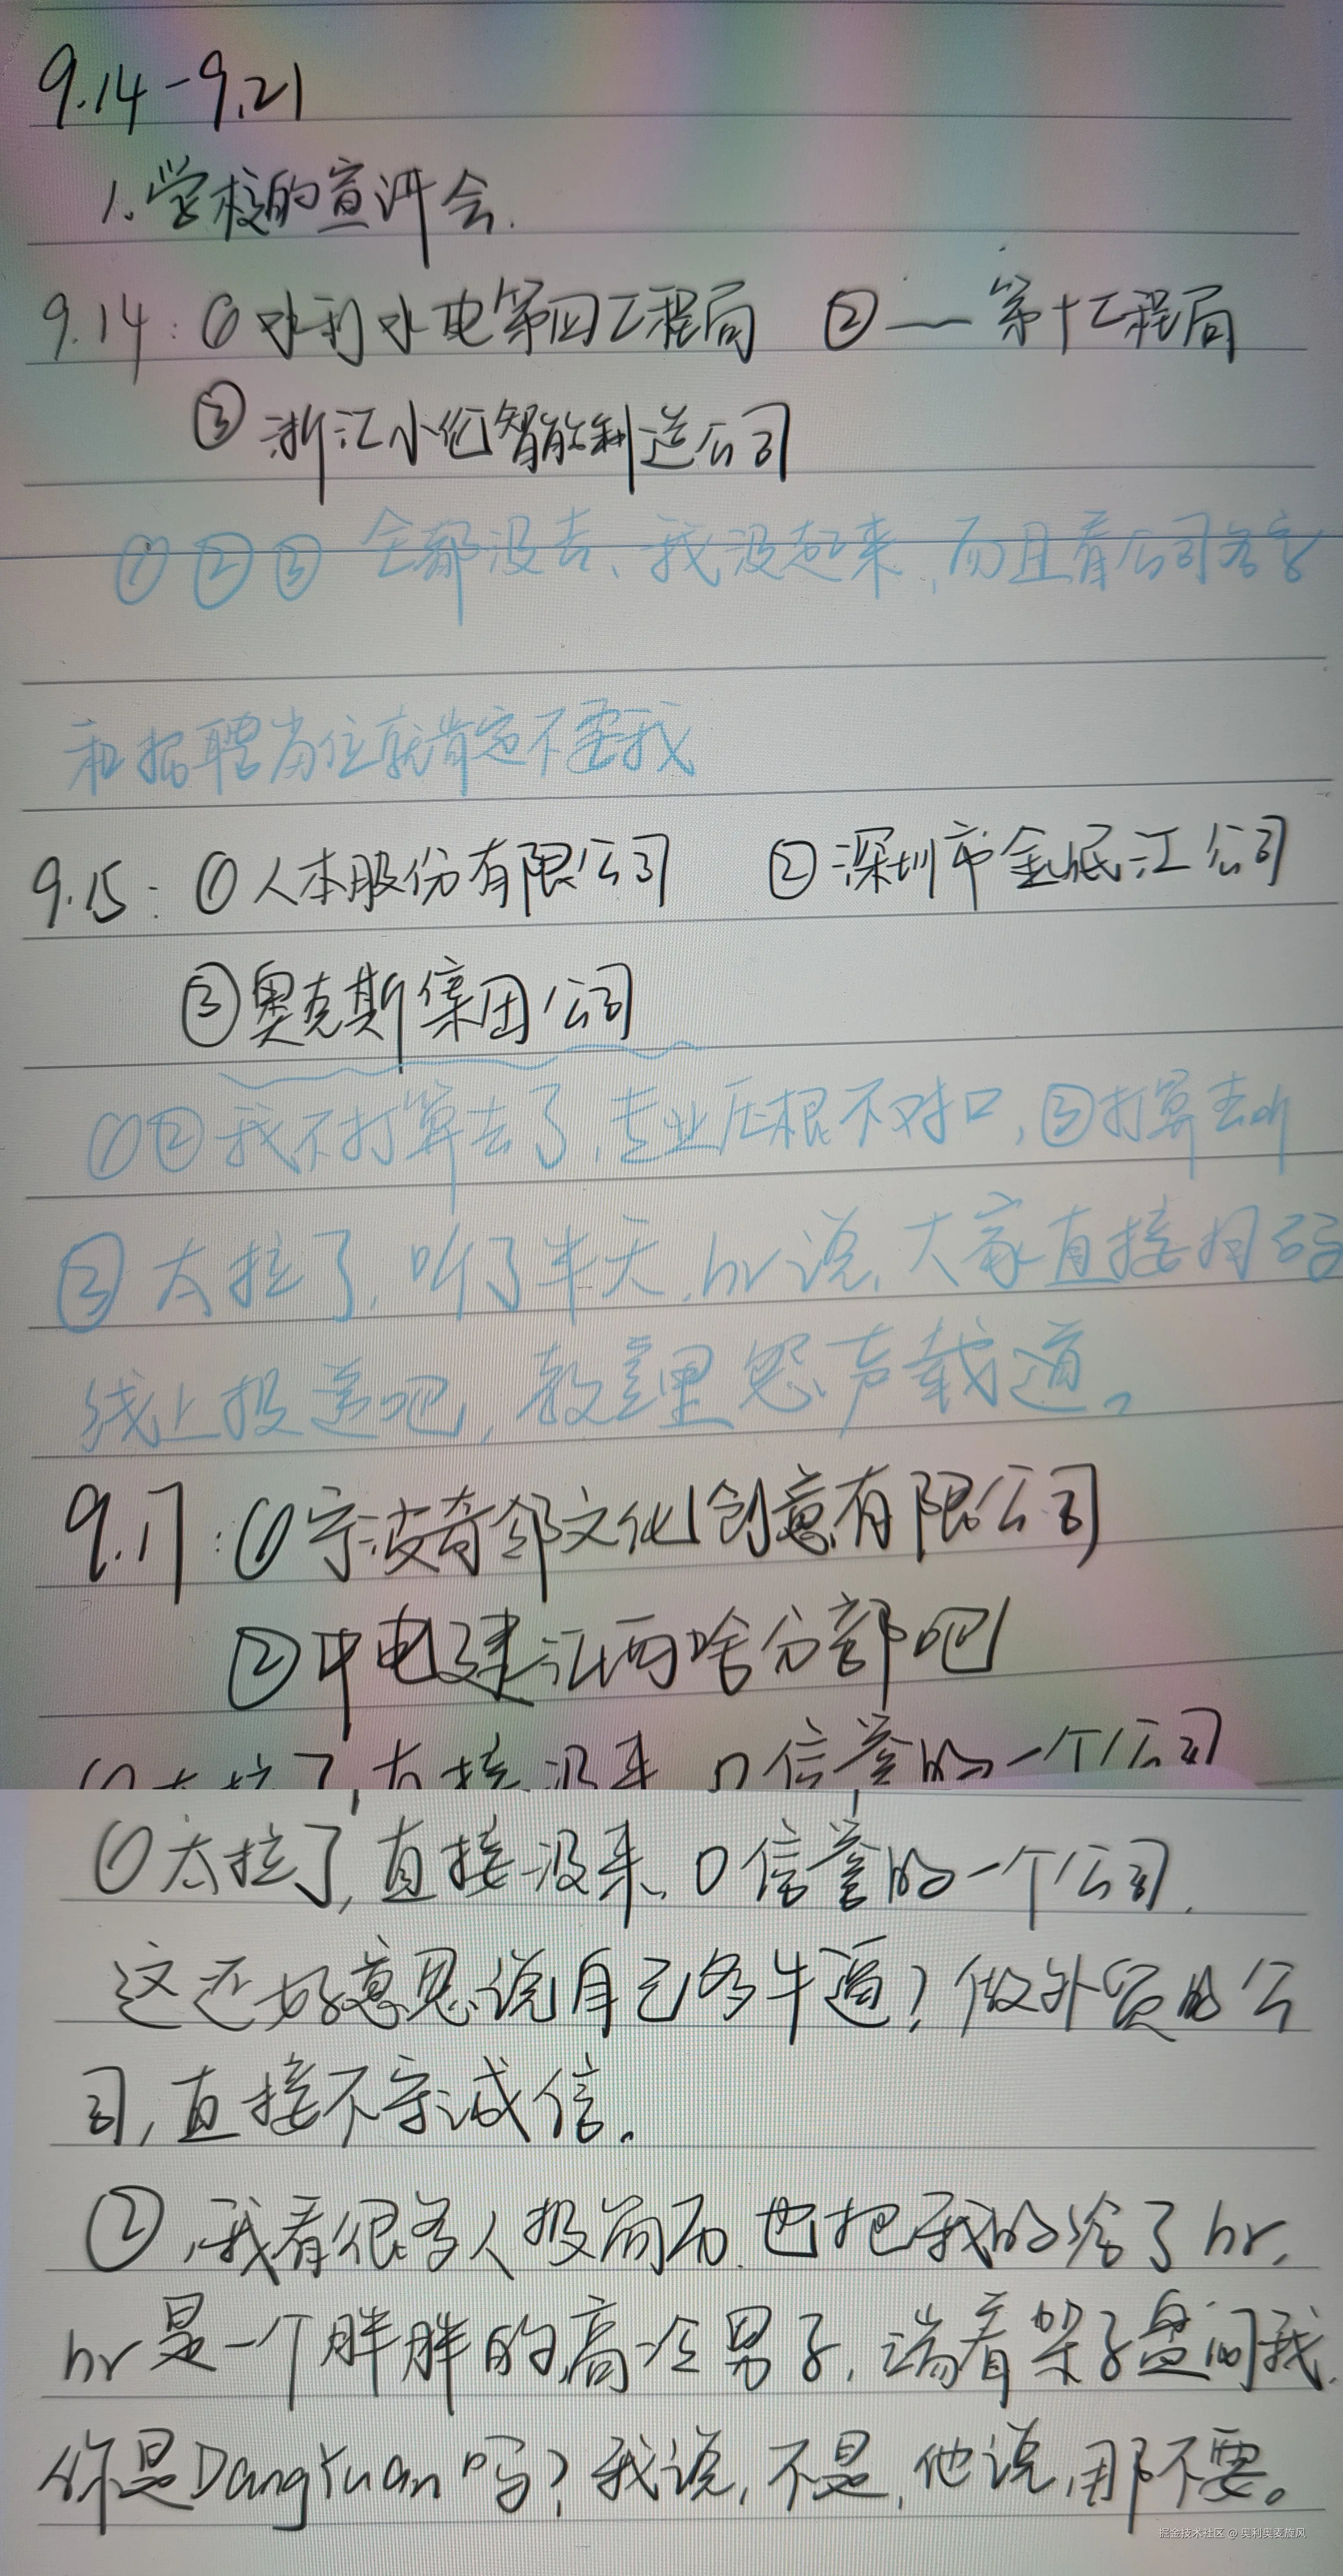 9.14-9.21
1.学校的宣讲会.
9.14:①水利水电第四工程局 ②——第十工程局
③浙江小伦智能制造公司
①②③全都没去、我没起来,而且看公司名字
和招聘岗位就肯定不要我
9.15:①人本股份有限公司 ②深圳市金岷江公司
③奥克斯集团公司
①②我不打算去了,专业压根不对口,③打算去听
③太拉了,听了半天,hr说,大家直接扫码
线上投递吧,教室里怨声载道。
9.17:①宁波奇邻文化创意有限公司
②中电建江西啥分部吧
①太拉了,直接没来,0信誉的一个公司
①太拉了,直接没来,0信誉的一个公司.
这还好意思说自己多牛逼?做外贸的公
司,直接不守诚信。
②,我看很多人投简历,也把我的给了hr,
hr是一个胖胖的高冷男子,端着架子盘问我,
你是DangYuan吗?我说,不是,他说,那不要。
掘金技术社区 @ 奥利奥麦旋风